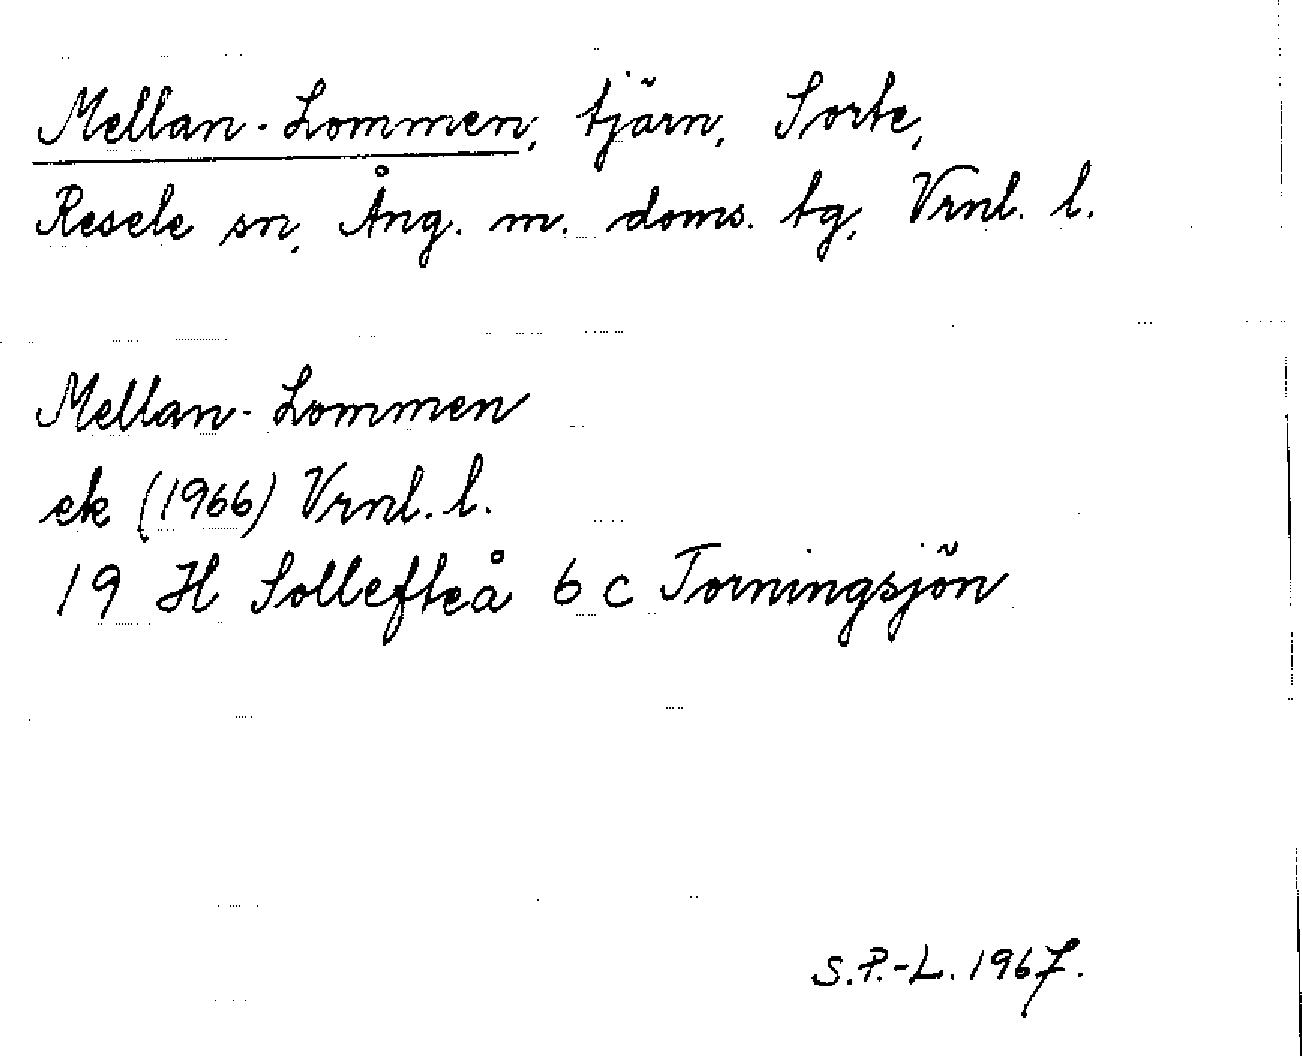 Mellan-Lommen, tjärn, Sorte,
Resele sn, Ång. m. doms. tg, Vrnl. l.
Mellan-Lommen
ek (1966) Vrnl. l.
19 H Sollefteå 6 c Torningsjön
S.P.-L. 1967.